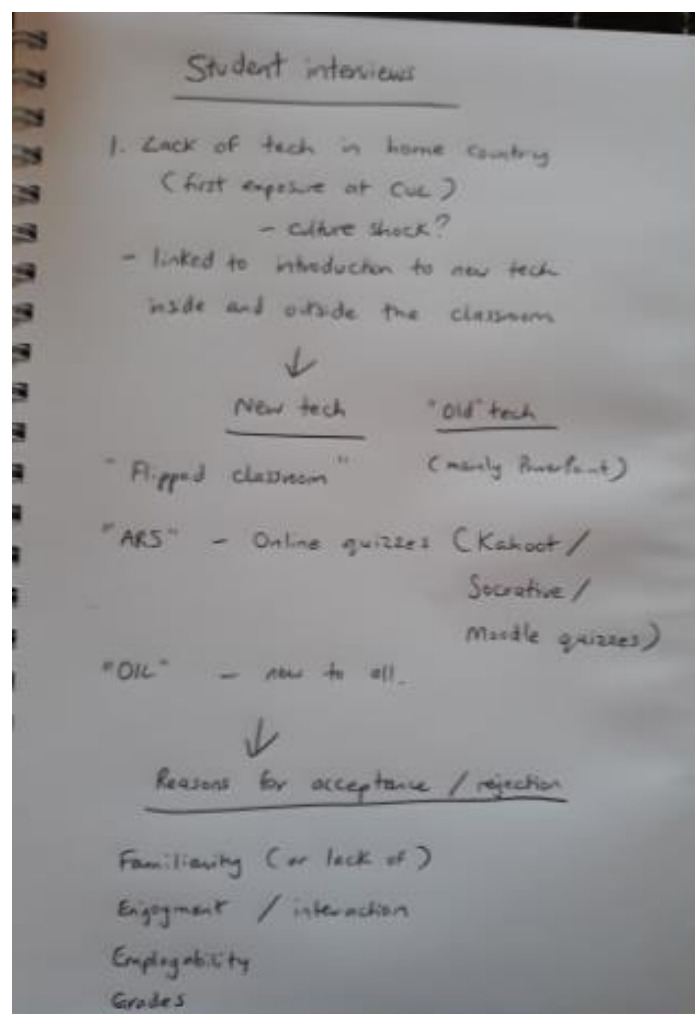 Student interviews
1. Lack of tech in home country
(first exposure at CUL)
- culture shock?
- linked to introduction to new tech
inside and outside the classroom
↓
New tech "Old" tech
"Flipped classroom" (mainly PowerPoint)
"ARS" - Online quizzes (Kahoot /
Socrative /
Moodle quizzes)
"OIL" - new to all.
↓
Reasons for acceptance / rejection
Familiarity (or lack of)
Enjoyment / interaction
Employability
Grades